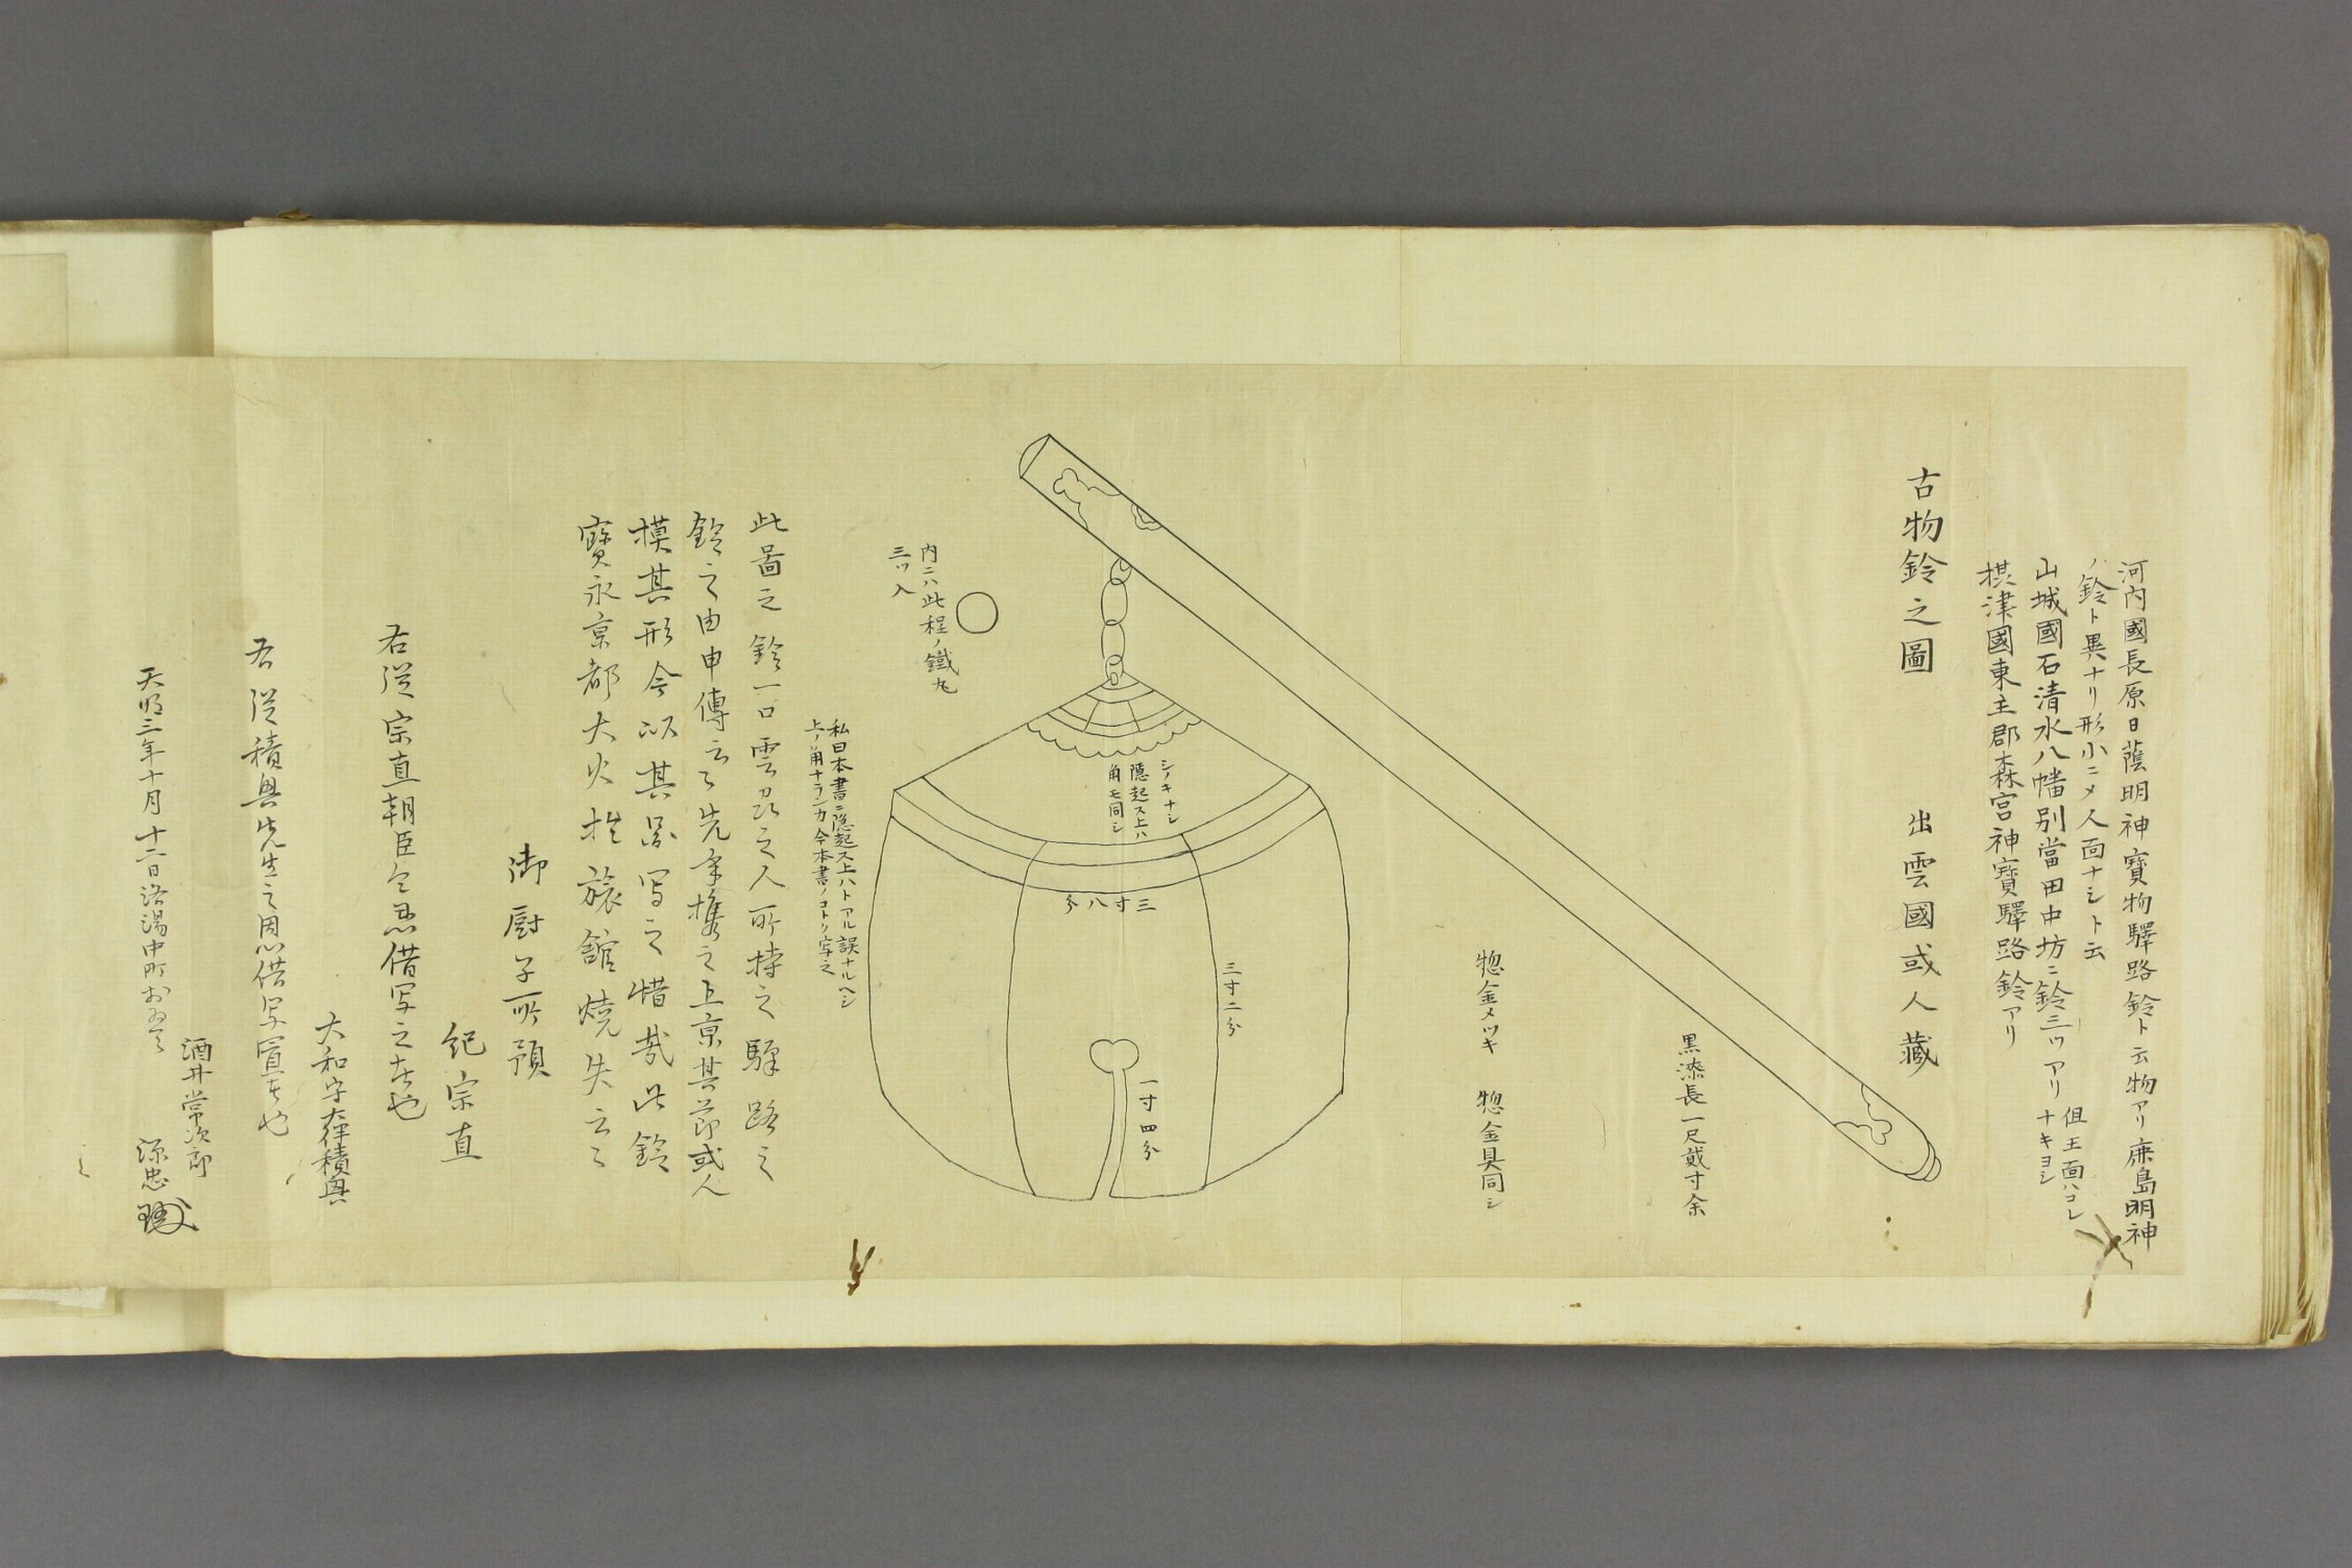 河内國長原日蔭明神寳物驛路鈴ト云物アリ鹿島明神
ノ鈴ト異ナリ形小ニメ人面ナシト云
山城國石清水八幡別當田中坊ニ鈴三ツアリ
但王面ハコレ
ナキヨシ
摂津國東生郡森宮神寳驛路鈴アリ
古物鈴之圖 出雲國或人藏
黒漆長一尺貳寸余
惣金メツキ 惣金具同シ
シノキナシ
隠起ス上ハ
角モ同シ
三寸八分
三寸二分
一寸四分
内ニハ此程ノ鐵丸
三ツ入
私曰本書ニ隠起ス上ハトアル誤ナルヘシ
上ノ角ナランカ今本書ノコトク写之
此啚之鈴一口雲州之人所持之驛路之
鈴之由申傳云々先年携之上京其節或人
模其形今以其啚写之惜哉此鈴
寳永京都大火於旅舘焼失云々
御厨子所預
紀宗直
右従宗直朝臣令恩借写之者也
大和守大伴積興
右従積興先生之恩借写置者也
酒井常次郎
天明三年十月十二日洛陽中町
源忠